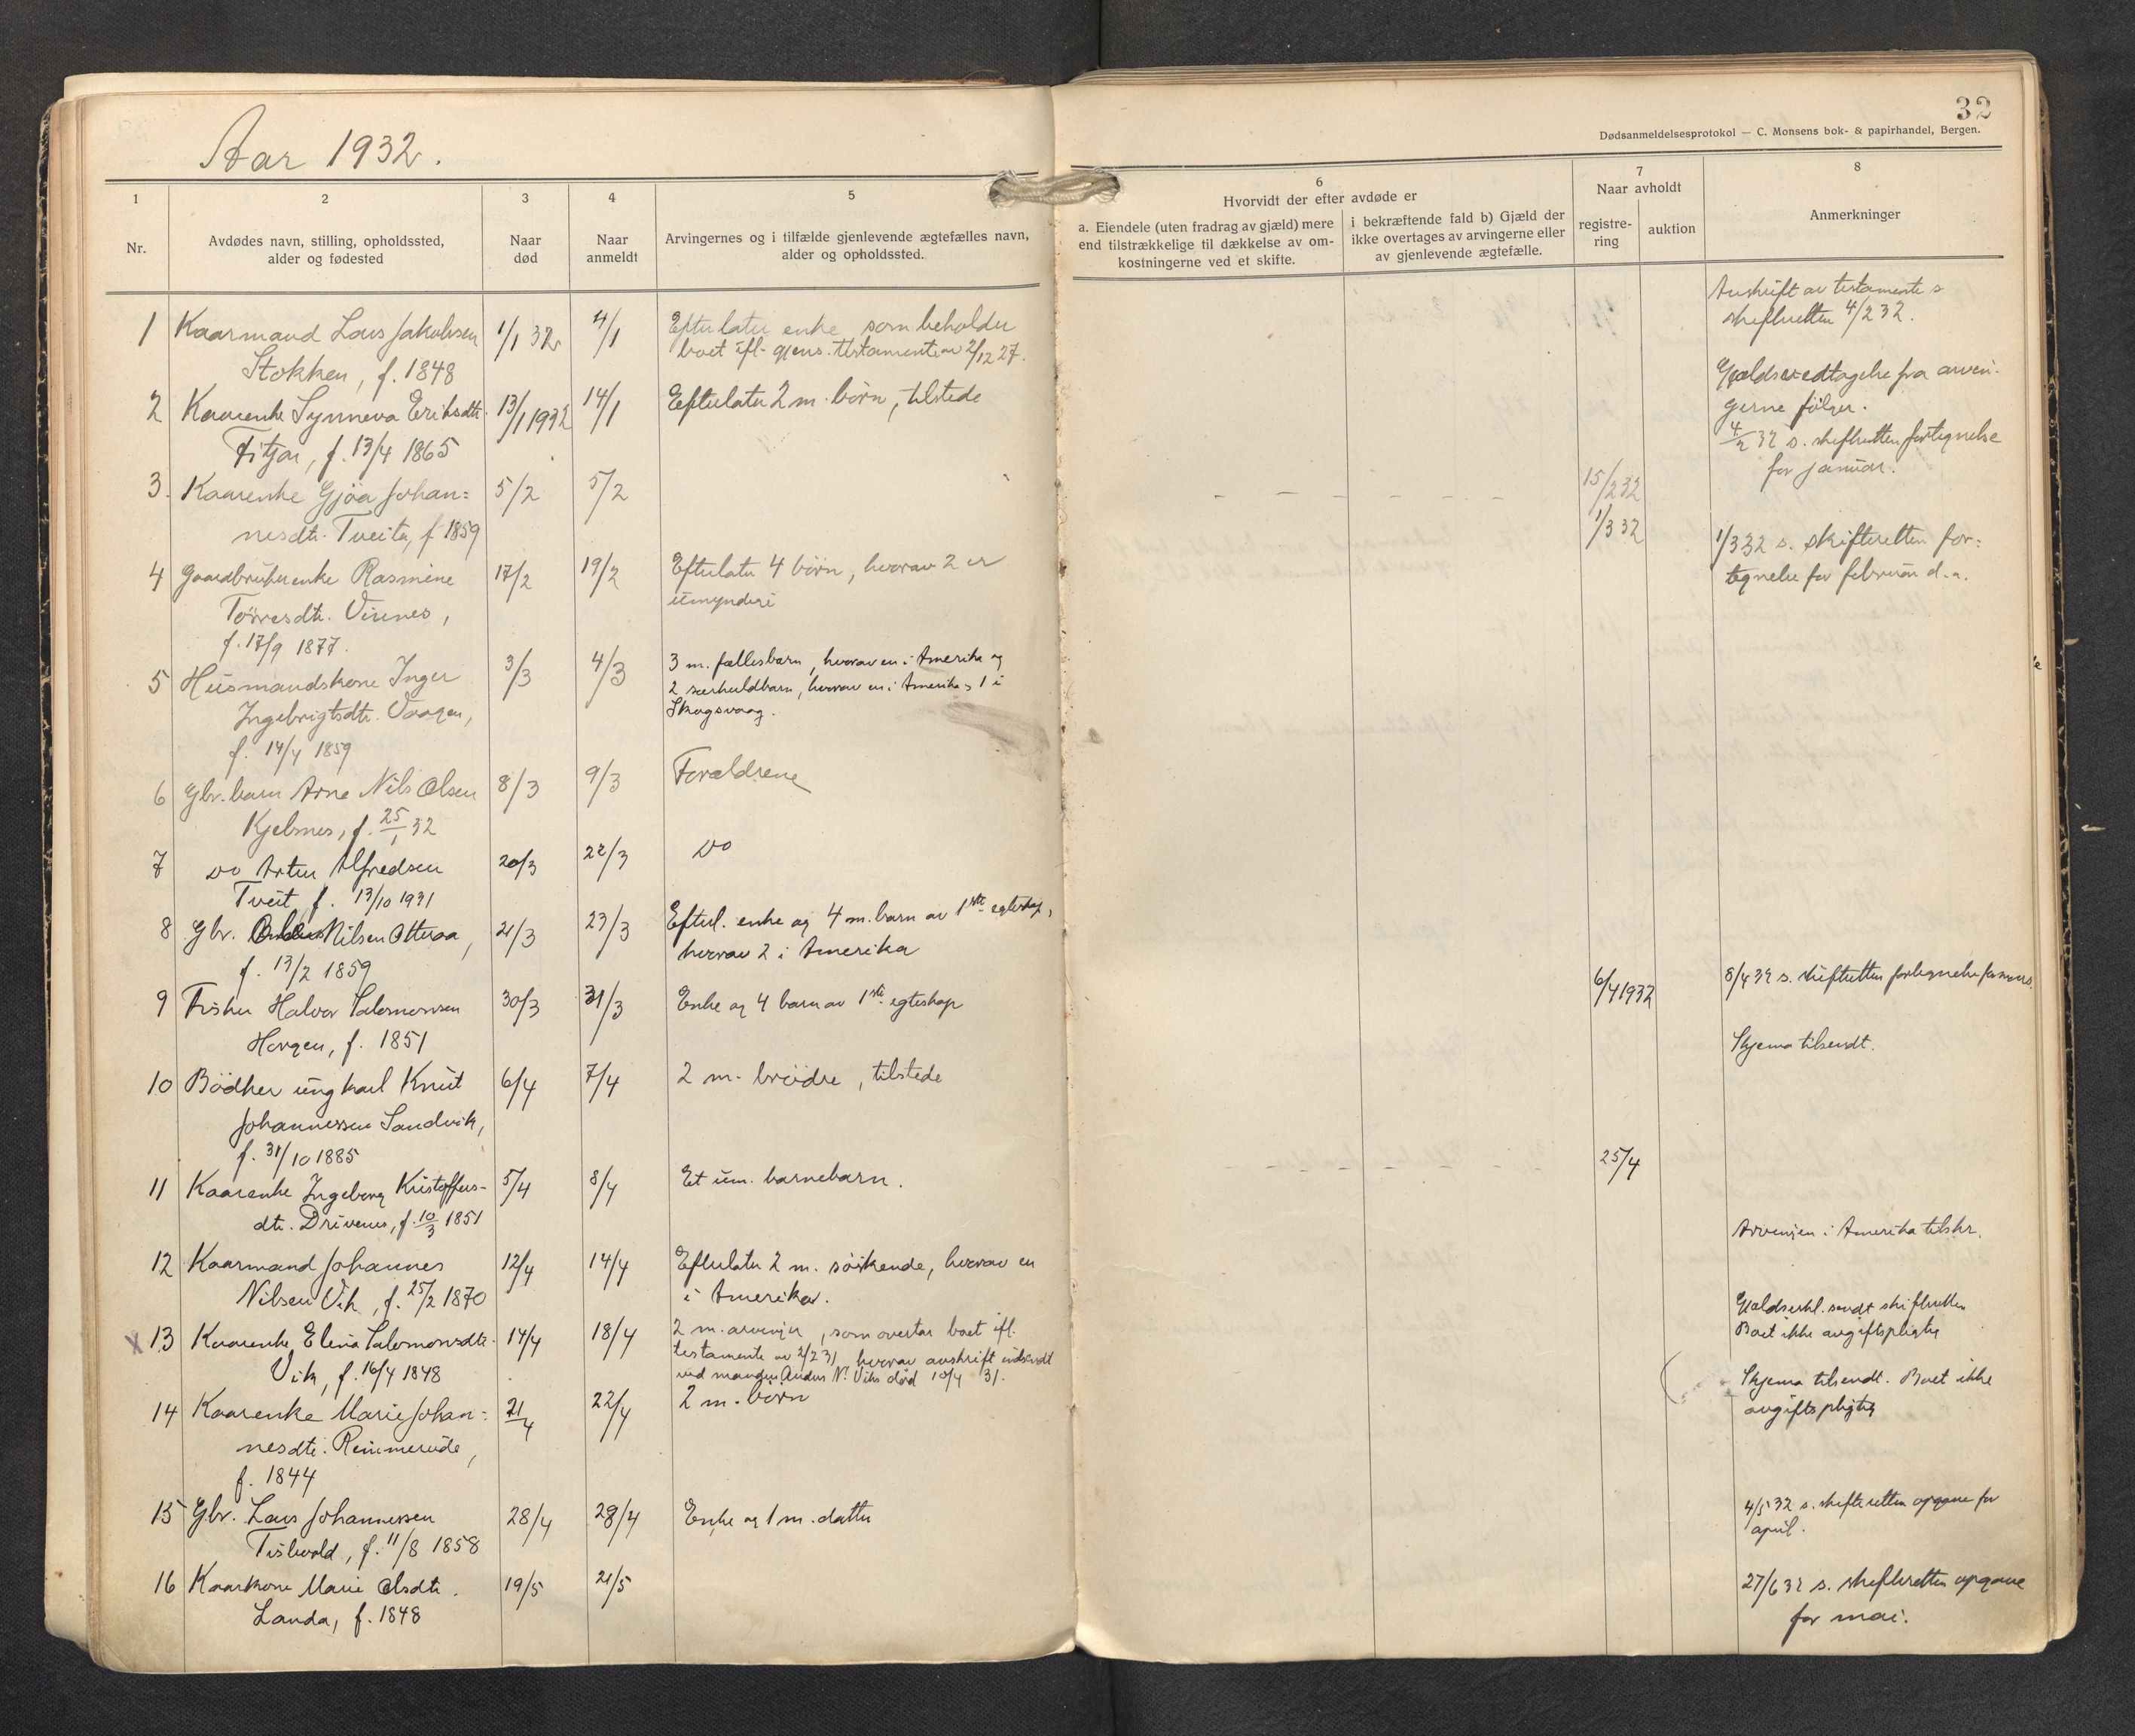 Aar 1932.
1
2
3
4
5
Nr.
Avdødes navn, stilling, opholdssted,
alder og fødested
Naar
død
Naar
anmeldt
Arvingernes og i tilfælde gjenlevende ægtefælles navn,
alder og opholdssted.
1 Kaarmand Lars Jakobsen 1/1 32 4/1 Efterlater enke, som beholder
Stokken, f. 1848 boet ifl. gjens. testamente av 2/12 27.
2 Kaarenke Synneva Eriksdtr. 13/1 1932 14/1 Efterlater 2 m. börn, tilstede
Fitjar, f. 13/4 1865
3. Kaarenke Gjöa Johan= 5/2 5/2
nesdtr. Tveita, f 1859
4 Gaardbrukerenke Rasmine 17/2 19/2 Efterlater 4 börn, hvorav 2 er
Torresdtr. Vinnes, umyndige
f. 17/9 1877.
5 Husmandskone Inger 3/3 4/3 3 m. fællesbarn, hvorav en i Amerika og
Ingebrigtsdtr. Vaagen, 2 særkuldbarn, hvorav en i Amerika, 1 i
f. 14/4 1859 Skogsvaag.
6 Gbr. barn Arne Nils Olsen 8/3 9/3 Forældrene
Kjelsnes, f. 25/1 32
7 Do Artur Alfredsen 20/3 22/3 Do
Tveit, f. 13/10 1931
8 Gbr. Nilsen Otteraa, 21/3 23/3 Efterl. enke og 4 m. barn av 1ste egteskap,
f. 13/2 1859 hvorav 2 i Amerika
9 Fisker Halvor Salomonsen 30/3 31/3 Enke og 4 barn av 1ste egteskap
Horgen, f. 1851
10 Bödker ungkarl Knut 6/4 7/4 2 m. brödre, tilstede
Johannessen Sandvik,
f. 31/10 1885
11 Kaarenke Ingeborg Kristoffers- 5/4 8/4 Et um. barnebarn.
dtr. Drivenes, f. 10/3 1851
12 Kaarmand Johannes 12/4 14/4 Efterlater 2 m. söskende, hvorav en
Nilsen Vik, f. 25/2 1870 i Amerika.
x 13 Kaarenke Elena Salomonsdtr. 14/4 18/4 2 m. arvinger, som overtar boet ifl.
Vik, f. 16/4 1848 testamente av 2/2 31, hvorav avskrift indsendt
ved manden Anders N. Viks död 10/4 31.
14 Kaarenke Marie Johan= 21/4 22/4 2 m. börn
nesdtr. Remmereide,
f. 1844
15 Gbr. Lars Johannessen 28/4 28/4 Enke og 1 m. datter
Tislevold, f. 11/8 1858
16 Kaarkone Marie Olsdtr. 19/5 21/5
Landa, f. 1848
32
Dødsanmeldelsesprotokol — C. Monsens bok- & papirhandel, Bergen.
6
7
8
Hvorvidt der efter avdøde er
Naar avholdt
a. Eiendele (uten fradrag av gjæld) mere
end tilstrækkelige til dækkelse av om-
kostningerne ved et skifte.
i bekræftende fald b) Gjæld der
ikke overtages av arvingerne eller
av gjenlevende ægtefælle.
registre-
ring
auktion
Anmerkninger
Avskrift av testamente s.
skifteretten 4/2 32.
Gjældsvedtagelse fra arvin-
gerne følger.
4/2 32 s. skifteretten fortegnelse
for januar.
- - - - - - 15/2 32
1/3 32 1/3 32 s. skifteretten for=
tegnelse for februar d.a.
6/4 1932 8/4 32 s. skifteretten fortegnelse for mars.
Skjema tilsendt.
- - - - - - 25/4
Arvingen i Amerika tilskr.
Gjældserkl. sendt skifteretten
Boet ikke avgiftspligtig
Skjema tilsendt. Boet ikke
avgiftspligtig
4/5 32 s. skifteretten opgave for
april.
27/6 32 s. skifteretten opgave
for mai.